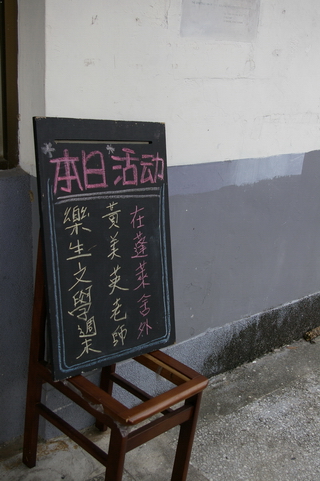 本日活动
樂生文學週末
黃美英老師
在蓬萊舍外